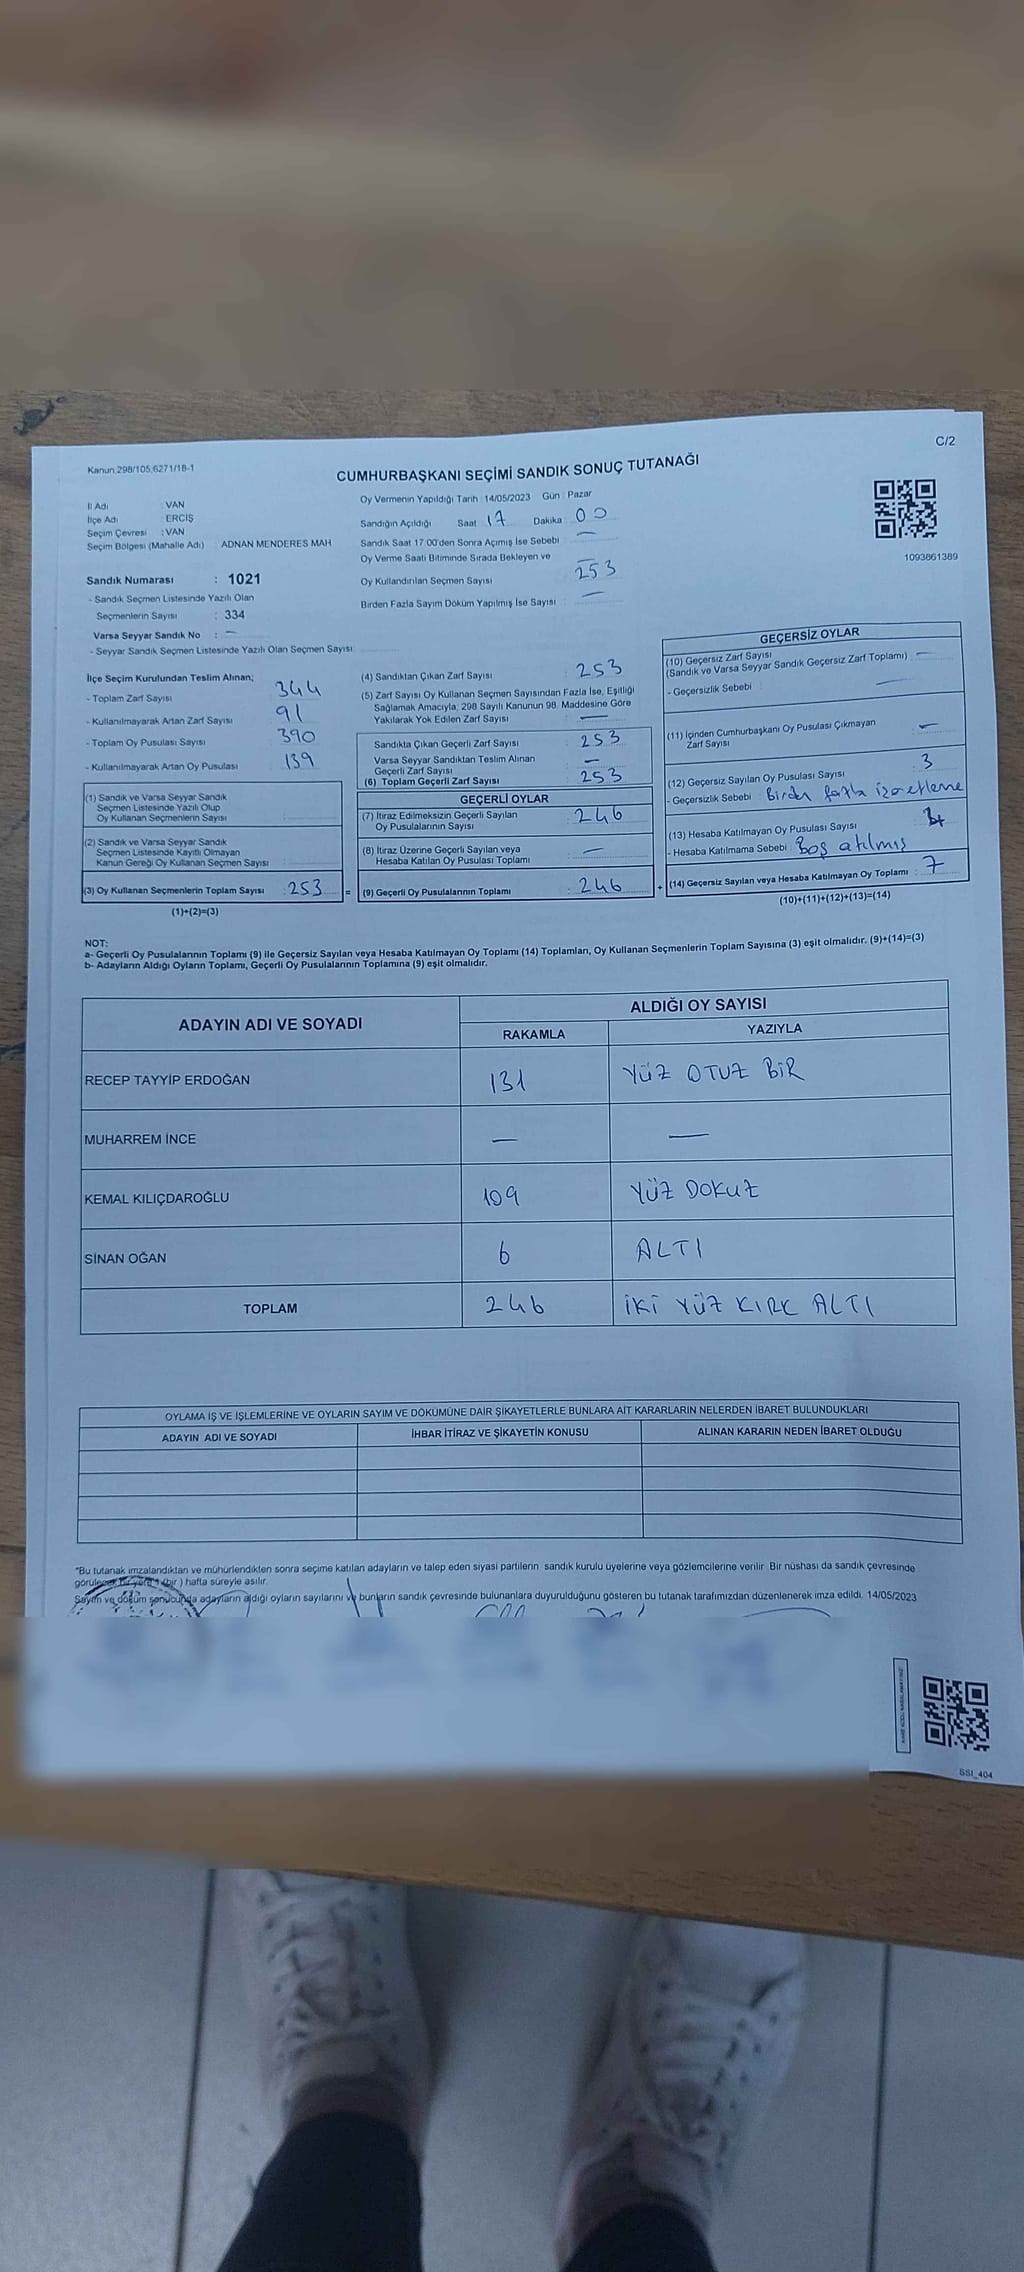 C/2
Kanun.298/105;6271/18-1
CUMHURBAŞKANI SEÇİMİ SANDIK SONUÇ TUTANAĞI
İl Adı : VAN
İlçe Adı : ERCİŞ
Seçim Çevresi : VAN
Seçim Bölgesi (Mahalle Adı) : ADNAN MENDERES MAH
Sandık Numarası : 1021
- Sandık Seçmen Listesinde Yazılı Olan
Seçmenlerin Sayısı : 334
Varsa Seyyar Sandık No : —
- Seyyar Sandık Seçmen Listesinde Yazılı Olan Seçmen Sayısı
Oy Vermenin Yapıldığı Tarih : 14/05/2023 Gün : Pazar
Sandığın Açıldığı Saat 17 Dakika 00
Sandık Saat 17:00'den Sonra Açımış İse Sebebi : —
Oy Verme Saati Bitiminde Sırada Bekleyen ve
Oy Kullandırılan Seçmen Sayısı — 253
Birden Fazla Sayım Döküm Yapılmış İse Sayısı : —
1093861389
İlçe Seçim Kurulundan Teslim Alınan;
- Toplam Zarf Sayısı 344
- Kullanılmayarak Artan Zarf Sayısı 91
- Toplam Oy Pusulası Sayısı 390
- Kullanılmayarak Artan Oy Pusulası 139
(1) Sandık ve Varsa Seyyar Sandık
Seçmen Listesinde Yazılı Olup
Oy Kullanan Seçmenlerin Sayısı
(2) Sandık ve Varsa Seyyar Sandık
Seçmen Listesinde Kayıtlı Olmayan
Kanun Gereği Oy Kullanan Seçmen Sayısı
(3) Oy Kullanan Seçmenlerin Toplam Sayısı : 253 =
(1)+(2)=(3)
(4) Sandıktan Çıkan Zarf Sayısı : 253
(5) Zarf Sayısı Oy Kullanan Seçmen Sayısından Fazla İse, Eşitliği
Sağlamak Amacıyla; 298 Sayılı Kanunun 98. Maddesine Göre
Yakılarak Yok Edilen Zarf Sayısı : —
Sandıkta Çıkan Geçerli Zarf Sayısı : 253
Varsa Seyyar Sandıktan Teslim Alınan
Geçerli Zarf Sayısı : —
(6) Toplam Geçerli Zarf Sayısı : 253
GEÇERLİ OYLAR
(7) İtiraz Edilmeksizin Geçerli Sayılan
Oy Pusulalarının Sayısı : 246
(8) İtiraz Üzerine Geçerli Sayılan veya
Hesaba Katılan Oy Pusulası Toplamı : —
(9) Geçerli Oy Pusulalarının Toplamı : 246 +
GEÇERSİZ OYLAR
(10) Geçersiz Zarf Sayısı
(Sandık ve Varsa Seyyar Sandık Geçersiz Zarf Toplamı) : —
- Geçersizlik Sebebi : —
(11) İçinden Cumhurbaşkanı Oy Pusulası Çıkmayan
Zarf Sayısı : —
(12) Geçersiz Sayılan Oy Pusulası Sayısı : 3
- Geçersizlik Sebebi : Birden fazla işaretleme
(13) Hesaba Katılmayan Oy Pusulası Sayısı : 4
- Hesaba Katılmama Sebebi : Boş atılmış
(14) Geçersiz Sayılan veya Hesaba Katılmayan Oy Toplamı : 7
(10)+(11)+(12)+(13)=(14)
NOT:
a- Geçerli Oy Pusulalarının Toplamı (9) ile Geçersiz Sayılan veya Hesaba Katılmayan Oy Toplamı (14) Toplamları, Oy Kullanan Seçmenlerin Toplam Sayısına (3) eşit olmalıdır. (9)+(14)=(3)
b- Adayların Aldığı Oyların Toplamı, Geçerli Oy Pusulalarının Toplamına (9) eşit olmalıdır.
ADAYIN ADI VE SOYADI ALDIĞI OY SAYISI
RAKAMLA YAZIYLA
RECEP TAYYİP ERDOĞAN 131 YÜZ OTUZ BİR
MUHARREM İNCE — —
KEMAL KILIÇDAROĞLU 109 YÜZ DOKUZ
SİNAN OĞAN 6 ALTI
TOPLAM 246 İKİ YÜZ KIRK ALTI
OYLAMA İŞ VE İŞLEMLERİNE VE OYLARIN SAYIM VE DÖKÜMÜNE DAİR ŞİKAYETLERLE BUNLARA AİT KARARLARIN NELERDEN İBARET BULUNDUKLARI
ADAYIN ADI VE SOYADI İHBAR İTİRAZ VE ŞİKAYETİN KONUSU ALINAN KARARIN NEDEN İBARET OLDUĞU
*Bu tutanak imzalandıktan ve mühürlendikten sonra seçime katılan adayların ve talep eden siyasi partilerin sandık kurulu üyelerine veya gözlemcilerine verilir. Bir nüshası da sandık çevresinde
görülecek bir yere 1 (bir) hafta süreyle asılır.
Sayım ve döküm sonucunda adayların aldığı oyların sayılarını ve bunların sandık çevresinde bulunanlara duyurulduğunu gösteren bu tutanak tarafımızdan düzenlenerek imza edildi. 14/05/2023
SSI_404